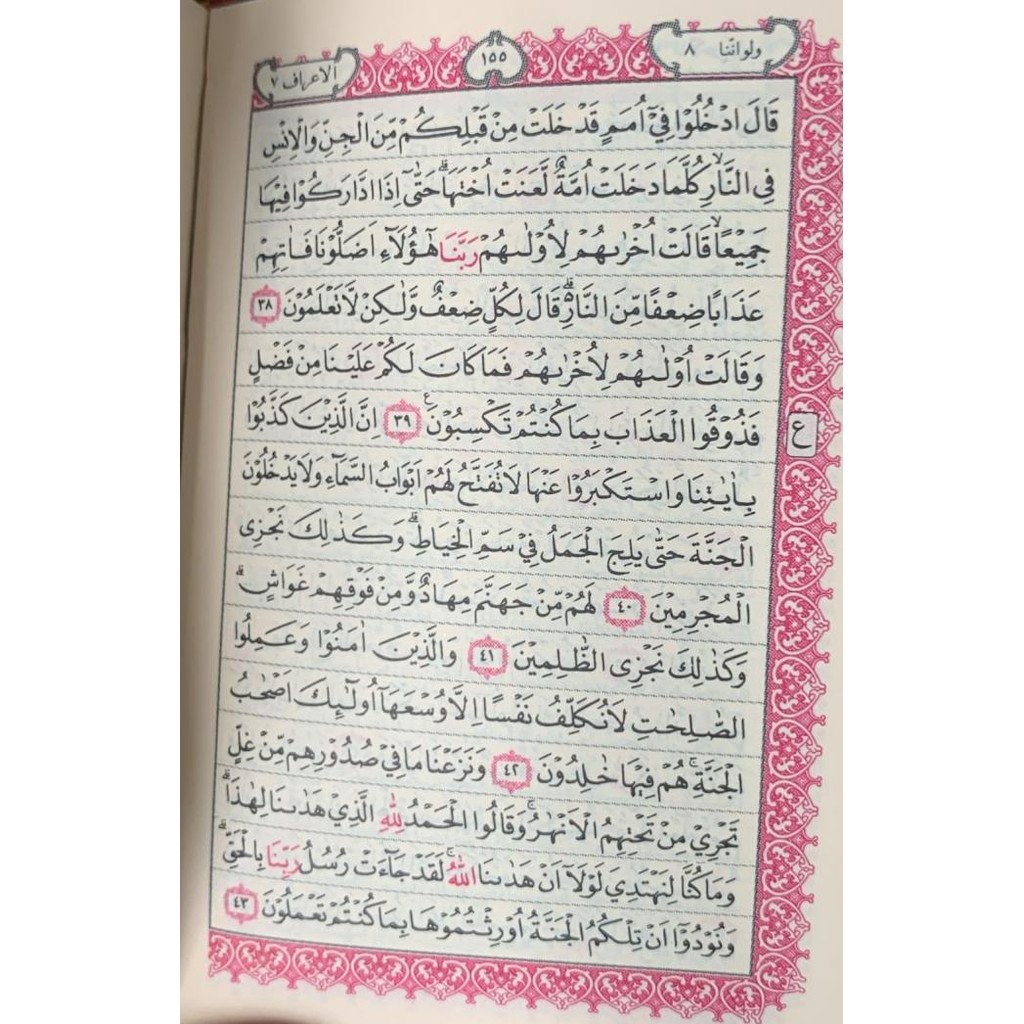 ولواننا ٨
١٥٥
الاعراف ٧
قَالَ ادْخُلُوْا فِيْٓ اُمَمٍ قَدْ خَلَتْ مِنْ قَبْلِكُمْ مِّنَ الْجِنِّ وَالْاِنْسِ
فِى النَّارِۙ كُلَّمَا دَخَلَتْ اُمَّةٌ لَّعَنَتْ اُخْتَهَاۗ حَتّٰٓى اِذَا ادَّارَكُوْا فِيْهَا
جَمِيْعًاۙ قَالَتْ اُخْرٰىهُمْ لِاُوْلٰىهُمْ رَبَّنَا هٰٓؤُلَاۤءِ اَضَلُّوْنَا فَاٰتِهِمْ
عَذَابًا ضِعْفًا مِّنَ النَّارِۗ قَالَ لِكُلٍّ ضِعْفٌ وَّلٰكِنْ لَّا تَعْلَمُوْنَ ٣٨
وَقَالَتْ اُوْلٰىهُمْ لِاُخْرٰىهُمْ فَمَا كَانَ لَكُمْ عَلَيْنَا مِنْ فَضْلٍ
فَذُوْقُوا الْعَذَابَ بِمَا كُنْتُمْ تَكْسِبُوْنَ ࣖ ٣٩ اِنَّ الَّذِيْنَ كَذَّبُوْا
ع
بِاٰيٰتِنَا وَاسْتَكْبَرُوْا عَنْهَا لَا تُفَتَّحُ لَهُمْ اَبْوَابُ السَّمَاۤءِ وَلَا يَدْخُلُوْنَ
الْجَنَّةَ حَتّٰى يَلِجَ الْجَمَلُ فِيْ سَمِّ الْخِيَاطِۗ وَكَذٰلِكَ نَجْزِى
الْمُجْرِمِيْنَ ٤٠ لَهُمْ مِّنْ جَهَنَّمَ مِهَادٌ وَّمِنْ فَوْقِهِمْ غَوَاشٍۗ
وَكَذٰلِكَ نَجْزِى الظّٰلِمِيْنَ ٤١ وَالَّذِيْنَ اٰمَنُوْا وَعَمِلُوا
الصّٰلِحٰتِ لَا نُكَلِّفُ نَفْسًا اِلَّا وُسْعَهَآ اُولٰۤىِٕكَ اَصْحٰبُ
الْجَنَّةِۚ هُمْ فِيْهَا خٰلِدُوْنَ ٤٢ وَنَزَعْنَا مَا فِيْ صُدُوْرِهِمْ مِّنْ غِلٍّ
تَجْرِيْ مِنْ تَحْتِهِمُ الْاَنْهٰرُۚ وَقَالُوا الْحَمْدُ لِلّٰهِ الَّذِيْ هَدٰىنَا لِهٰذَاۗ
وَمَا كُنَّا لِنَهْتَدِيَ لَوْلَآ اَنْ هَدٰىنَا اللّٰهُۚ لَقَدْ جَاۤءَتْ رُسُلُ رَبِّنَا بِالْحَقِّۗ
وَنُوْدُوْٓا اَنْ تِلْكُمُ الْجَنَّةُ اُوْرِثْتُمُوْهَا بِمَا كُنْتُمْ تَعْمَلُوْنَ ٤٣